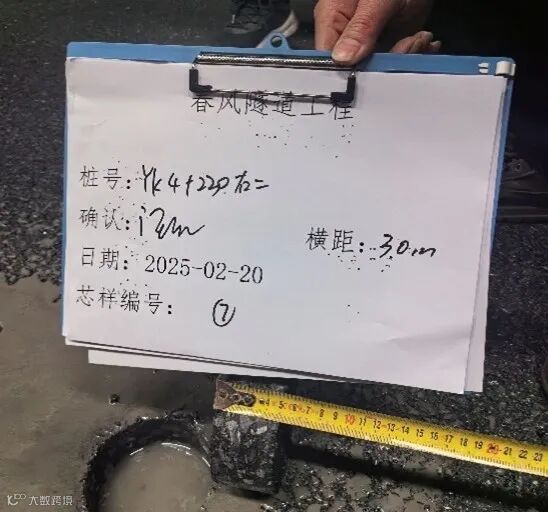 春风隧道工程
桩号：YK4+220右二
确认：
横距：3.0m
日期：2025-02-20
芯样编号：⑦
4 5 6 7 8 9 10 11 12 13 14 15 16 17 18 19 20 21 22 23
大数跨境